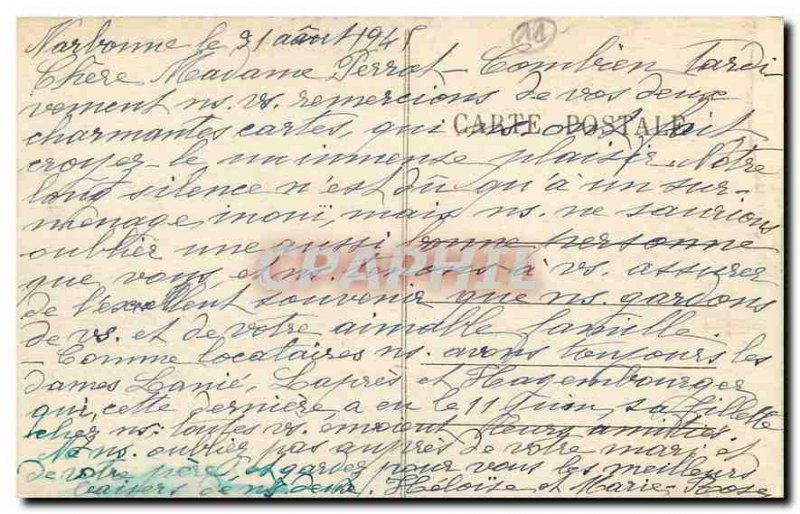 11
Narbonne le 31 août 194
Chère Madame Perrot – Combien Tardi-
vement ns. vs. remercions de vos deux
CARTE POSTALE
charmantes cartes, qui ns. ont fait
croyez-le un immense plaisir. Notre
long silence n'est dû qu'à un sur-
ménage inouï, mais ns. ne saurions
oublier une aussi bonne personne
que vous, et ns. tenons à vs. assurer
CPAPHIL
de l'excellent souvenir que ns. gardons
de vs. et de votre aimable famille.
– Comme locataires ns. avons toujours les
dames Lanié, Laprès et Hagembourger
qui, cette dernière, a eu le 11 Juin, sa fillette
chez ns. toutes vs. envoient leurs amitiés.
Ne ns. oublier pas auprès de votre mari et
de votre et garder pour vous les meilleurs
baisers de ns. deux. Héloïse et Marie-Rose